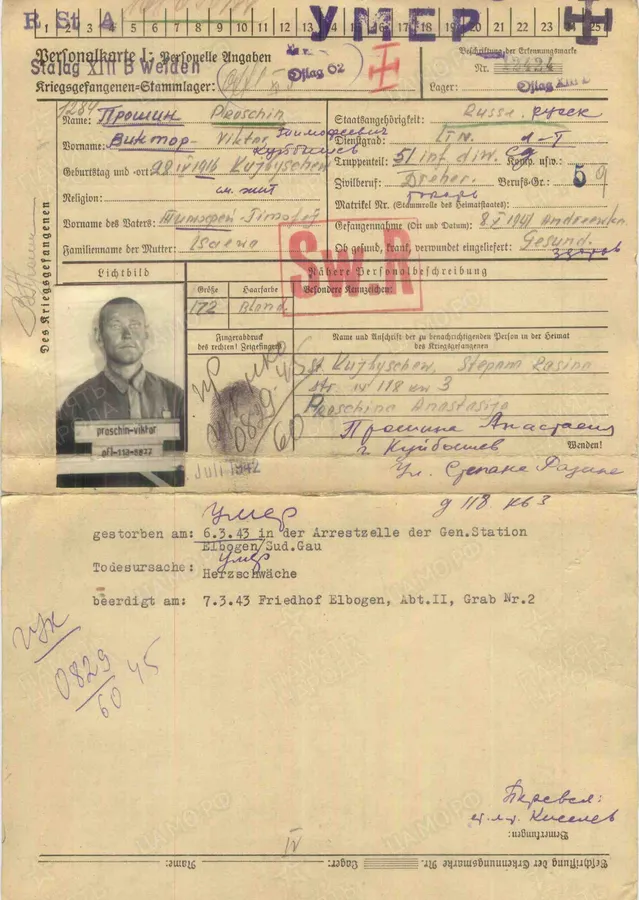 R St A
УМЕР
1 2 3 4 5 6 7 8 9 10 11 12 13 14 15 16 17 18 19 20 21 22 23 24 25
Personalkarte I: Personelle Angaben
Beschriftung der Erkennungsmarke
Stalag XIII B Weiden
Oflag 62
Nr.
Kriegsgefangenen=Stammlager:
Lager: Oflag XIII
1284
Name: Прошин Proschin
Staatsangehörigkeit: Russe. русск
Vorname: Виктор Viktor Тимофеевич
Dienstgrad: LTN. л-т
Куйбышев
Geburtstag und -ort: 28 IV 1916 Kujbyschew
Truppenteil: 51 inf. div. Komp. usw.:
Zivilberuf: Dreher. Berufs-Gr.: 5 9
Religion:
токарь
Matrikel Nr. (Stammrolle des Heimatstaates):
Vorname des Vaters: Тимофей Timofej
Gefangennahme (Ort und Datum): 8 X 1941
Familienname der Mutter: Isaena
Ob gesund, krank, verwundet eingeliefert: Gesund.
здоров
Des Kriegsgefangenen
Lichtbild
Nähere Personalbeschreibung
SwR
Größe Haarfarbe Besondere Kennzeichen:
172 Blond
Fingerabdruck
des rechten! Zeigefingers
Name und Anschrift der zu benachrichtigenden Person in der Heimat
des Kriegsgefangenen
st. Kujbyschew, Stepana Rasina
str. N 118 kw 3
Proschina Anastasija
Прошина Анастасия
г. Куйбышев
Wenden!
Ул. Степана Разина
д 118 кв 3
0829
60
proschin-viktor
Juli 1942
Умер
gestorben am: 6.3.43 in der Arrestzelle der Gen.Station
Elbogen/Sud.Gau
Умер
Todesursache: Herzschwäche
beerdigt am: 7.3.43 Friedhof Elbogen, Abt.II, Grab Nr.2
0829 45
60
Перевел:
ст. л-т Киселев
Bemerkungen:
IV
Beschriftung der Erkennungsmarke Nr. Lager: Name: